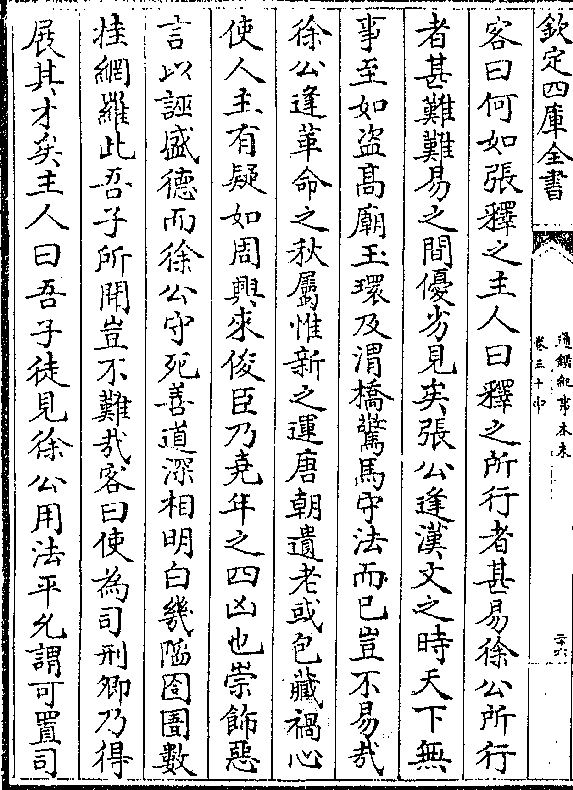 欽定四庫全書
通鑑紀事本末
卷三十中
二十六
客曰何如張釋之主人曰釋之所行者甚易徐公所行
者甚難難易之間優劣見矣張公逢漢文之時天下無
事至如盜髙廟玉環及渭橋驚馬守法而已豈不易哉
徐公逢革命之秋屬惟新之運唐朝遺老或包藏禍心
使人主有疑如周興來俊臣乃堯年之四凶也崇飾惡
言以誣盛德而徐公守死善道深相明白幾陷囹圄數
挂網羅此吾子所聞豈不難哉客曰使為司刑卿乃得
展其才矣主人曰吾子徒見徐公用法平允謂可置司